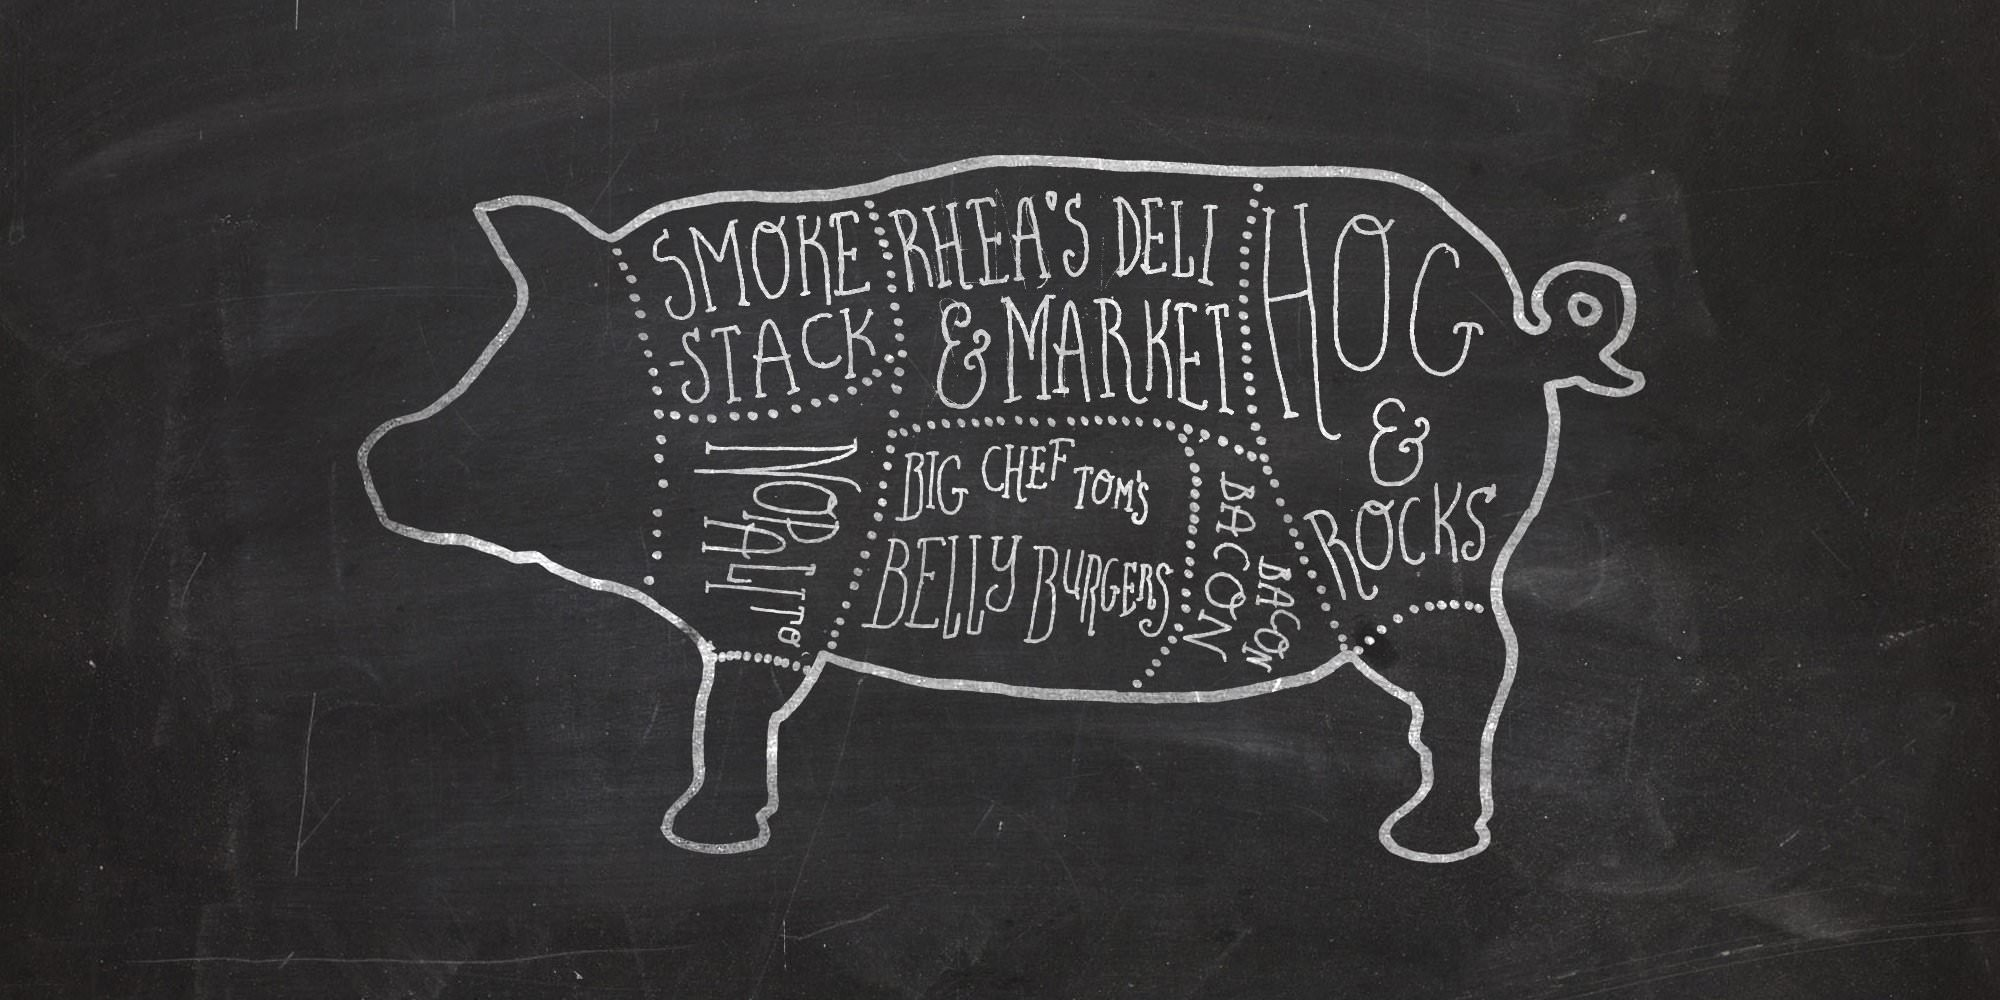 SMOKE
-STACK
RHEA'S DELI
& MARKET
HOG
&
ROCKS
NOPALITO
BIG CHEF TOM'S
BELLY BURGERS
BACON
BACON